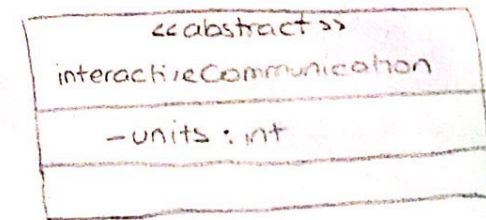 <<abstract>>
interactiveCommunication
-units : int